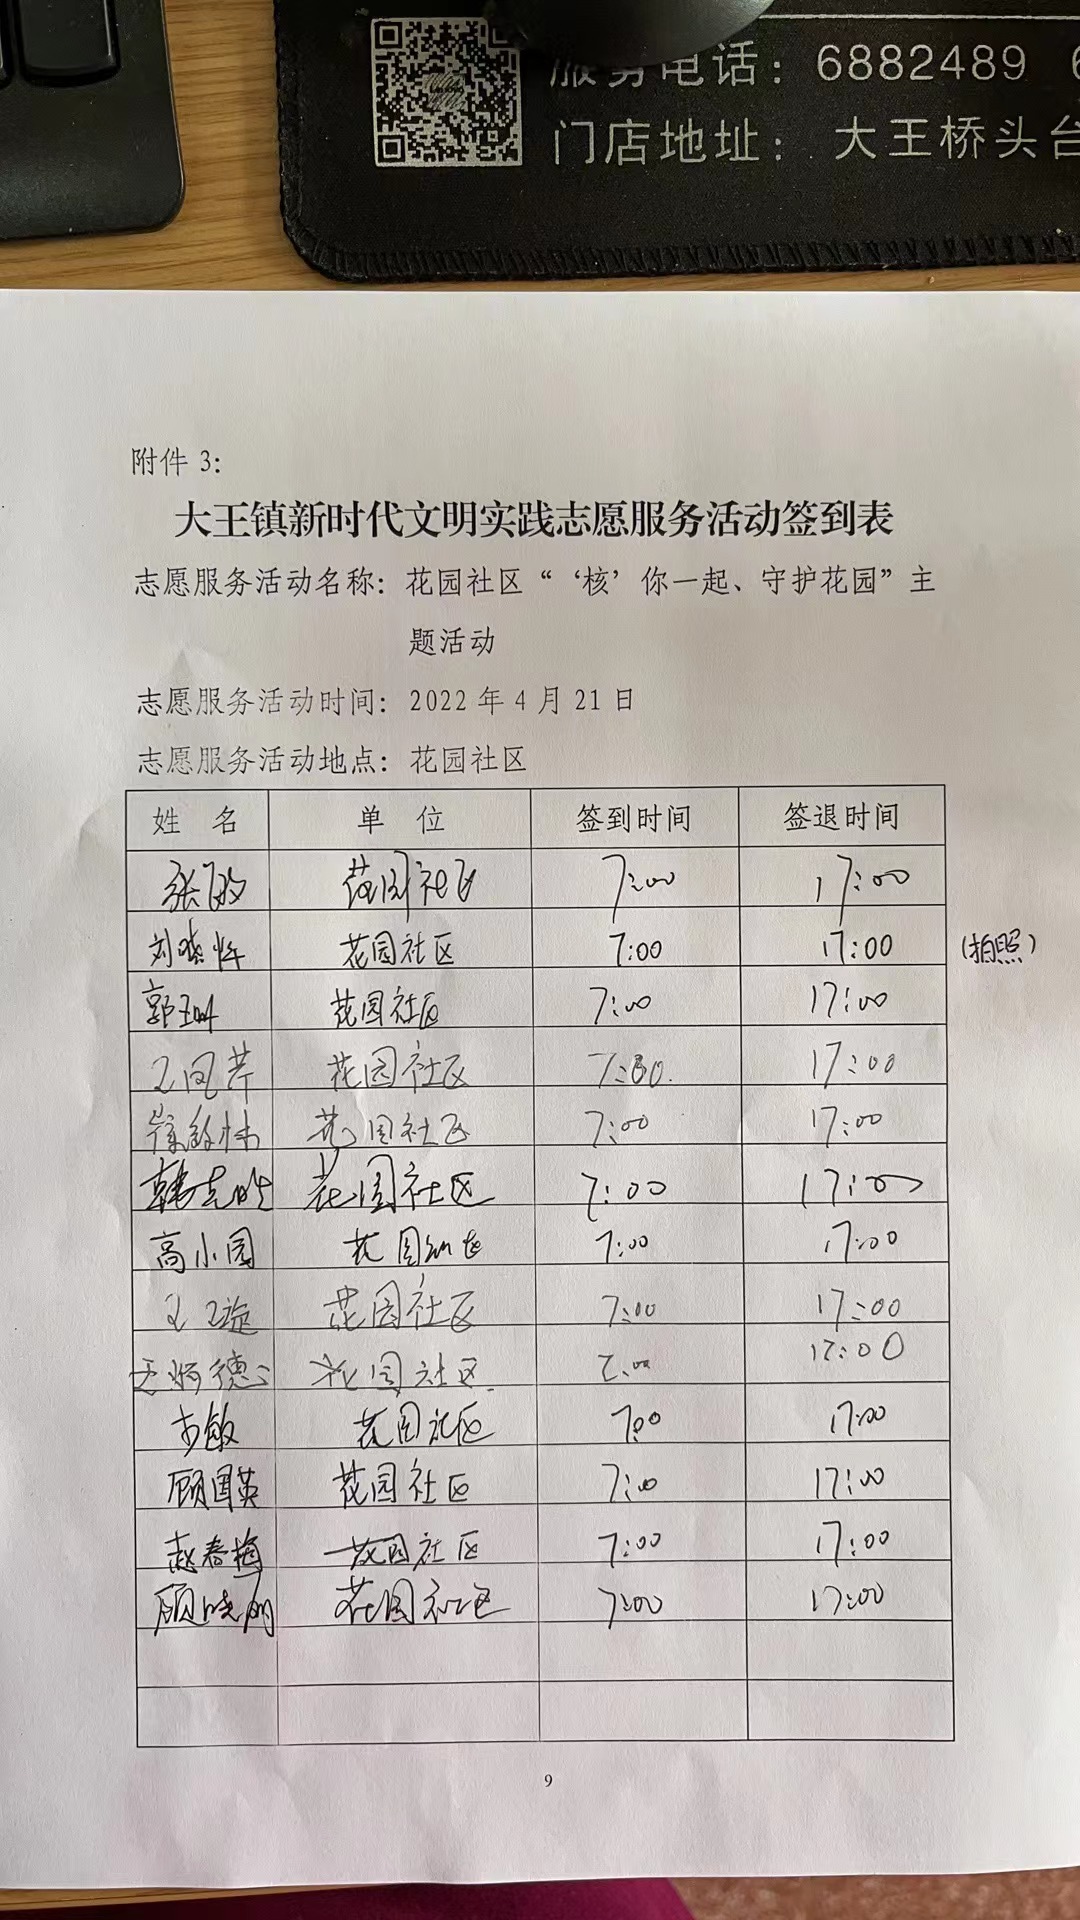 服务电话：6882489 6
门店地址：大王桥头台
附件 3：
大王镇新时代文明实践志愿服务活动签到表
志愿服务活动名称：花园社区“‘核’你一起、守护花园”主
题活动
志愿服务活动时间：2022 年 4 月 21 日
志愿服务活动地点：花园社区
姓 名 单 位 签到时间 签退时间
张 花园社区 7:00 17:00
刘 花园社区 7:00 17:00 (拍照)
郭 花园社区 7:00 17:00
花园社区 17:00
花园社区 7:00 17:00
韩志 花园社区 7:00 17:00
高小园 花园社区 7:00 17:00
花园社区 7:00 17:00
花园社区 17:00
敏 花园社区 7:00 17:00
顾国英 花园社区 7:00 17:00
赵春梅 花园社区 7:00 17:00
顾晓 花园社区 7:00 17:00
9